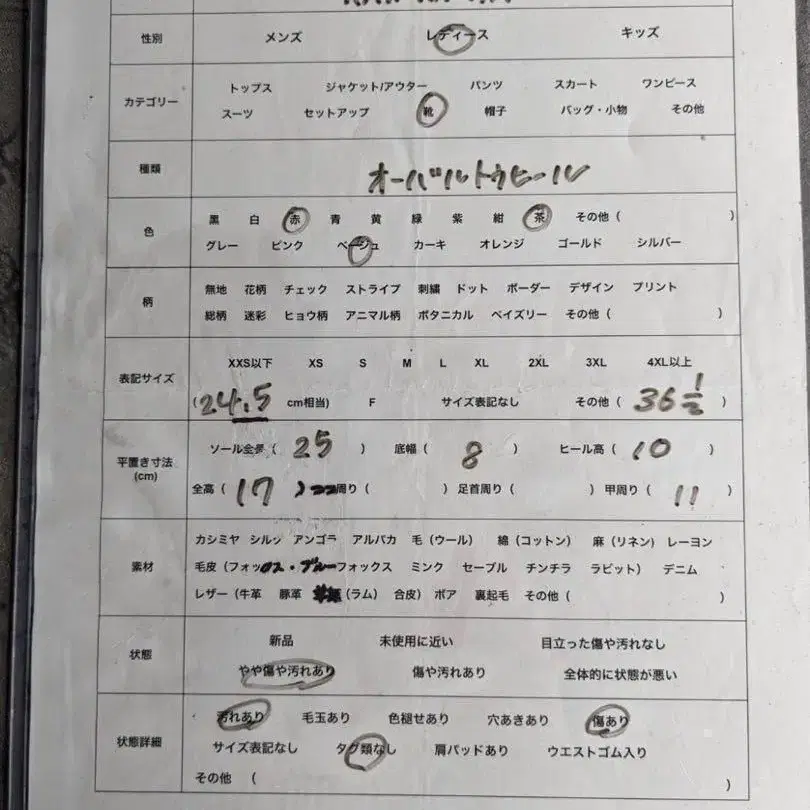 性別 メンズ レディース キッズ
カテゴリー
トップス ジャケット/アウター パンツ スカート ワンピース
スーツ セットアップ 靴 帽子 バッグ・小物 その他
種類 オーバルトウヒール
色
黒 白 赤 青 黄 緑 紫 紺 茶 その他 ( )
グレー ピンク ベージュ カーキ オレンジ ゴールド シルバー
柄
無地 花柄 チェック ストライプ 刺繍 ドット ボーダー デザイン プリント
総柄 迷彩 ヒョウ柄 アニマル柄 ボタニカル ペイズリー その他 ( )
表記サイズ
XXS以下 XS S M L XL 2XL 3XL 4XL以上
(24.5 cm相当) F サイズ表記なし その他 ( 36 1/2 )
平置き寸法
(cm)
ソール全長 ( 25 ) 底幅 ( 8 ) ヒール高 ( 10 )
全高 ( 17 ) 周り ( ) 足首周り ( ) 甲周り ( 11 )
素材
カシミヤ シルク アンゴラ アルパカ 毛 (ウール) 綿 (コットン) 麻 (リネン) レーヨン
毛皮 (フォックス・ブルーフォックス ミンク セーブル チンチラ ラビット) デニム
レザー (牛革 豚革 (ラム) 合皮) ボア 裏起毛 その他 ( )
状態
新品 未使用に近い 目立った傷や汚れなし
やや傷や汚れあり 傷や汚れあり 全体的に状態が悪い
状態詳細
汚れあり 毛玉あり 色褪せあり 穴あきあり 傷あり
サイズ表記なし タグ類なし 肩パッドあり ウエストゴム入り
その他 ( )